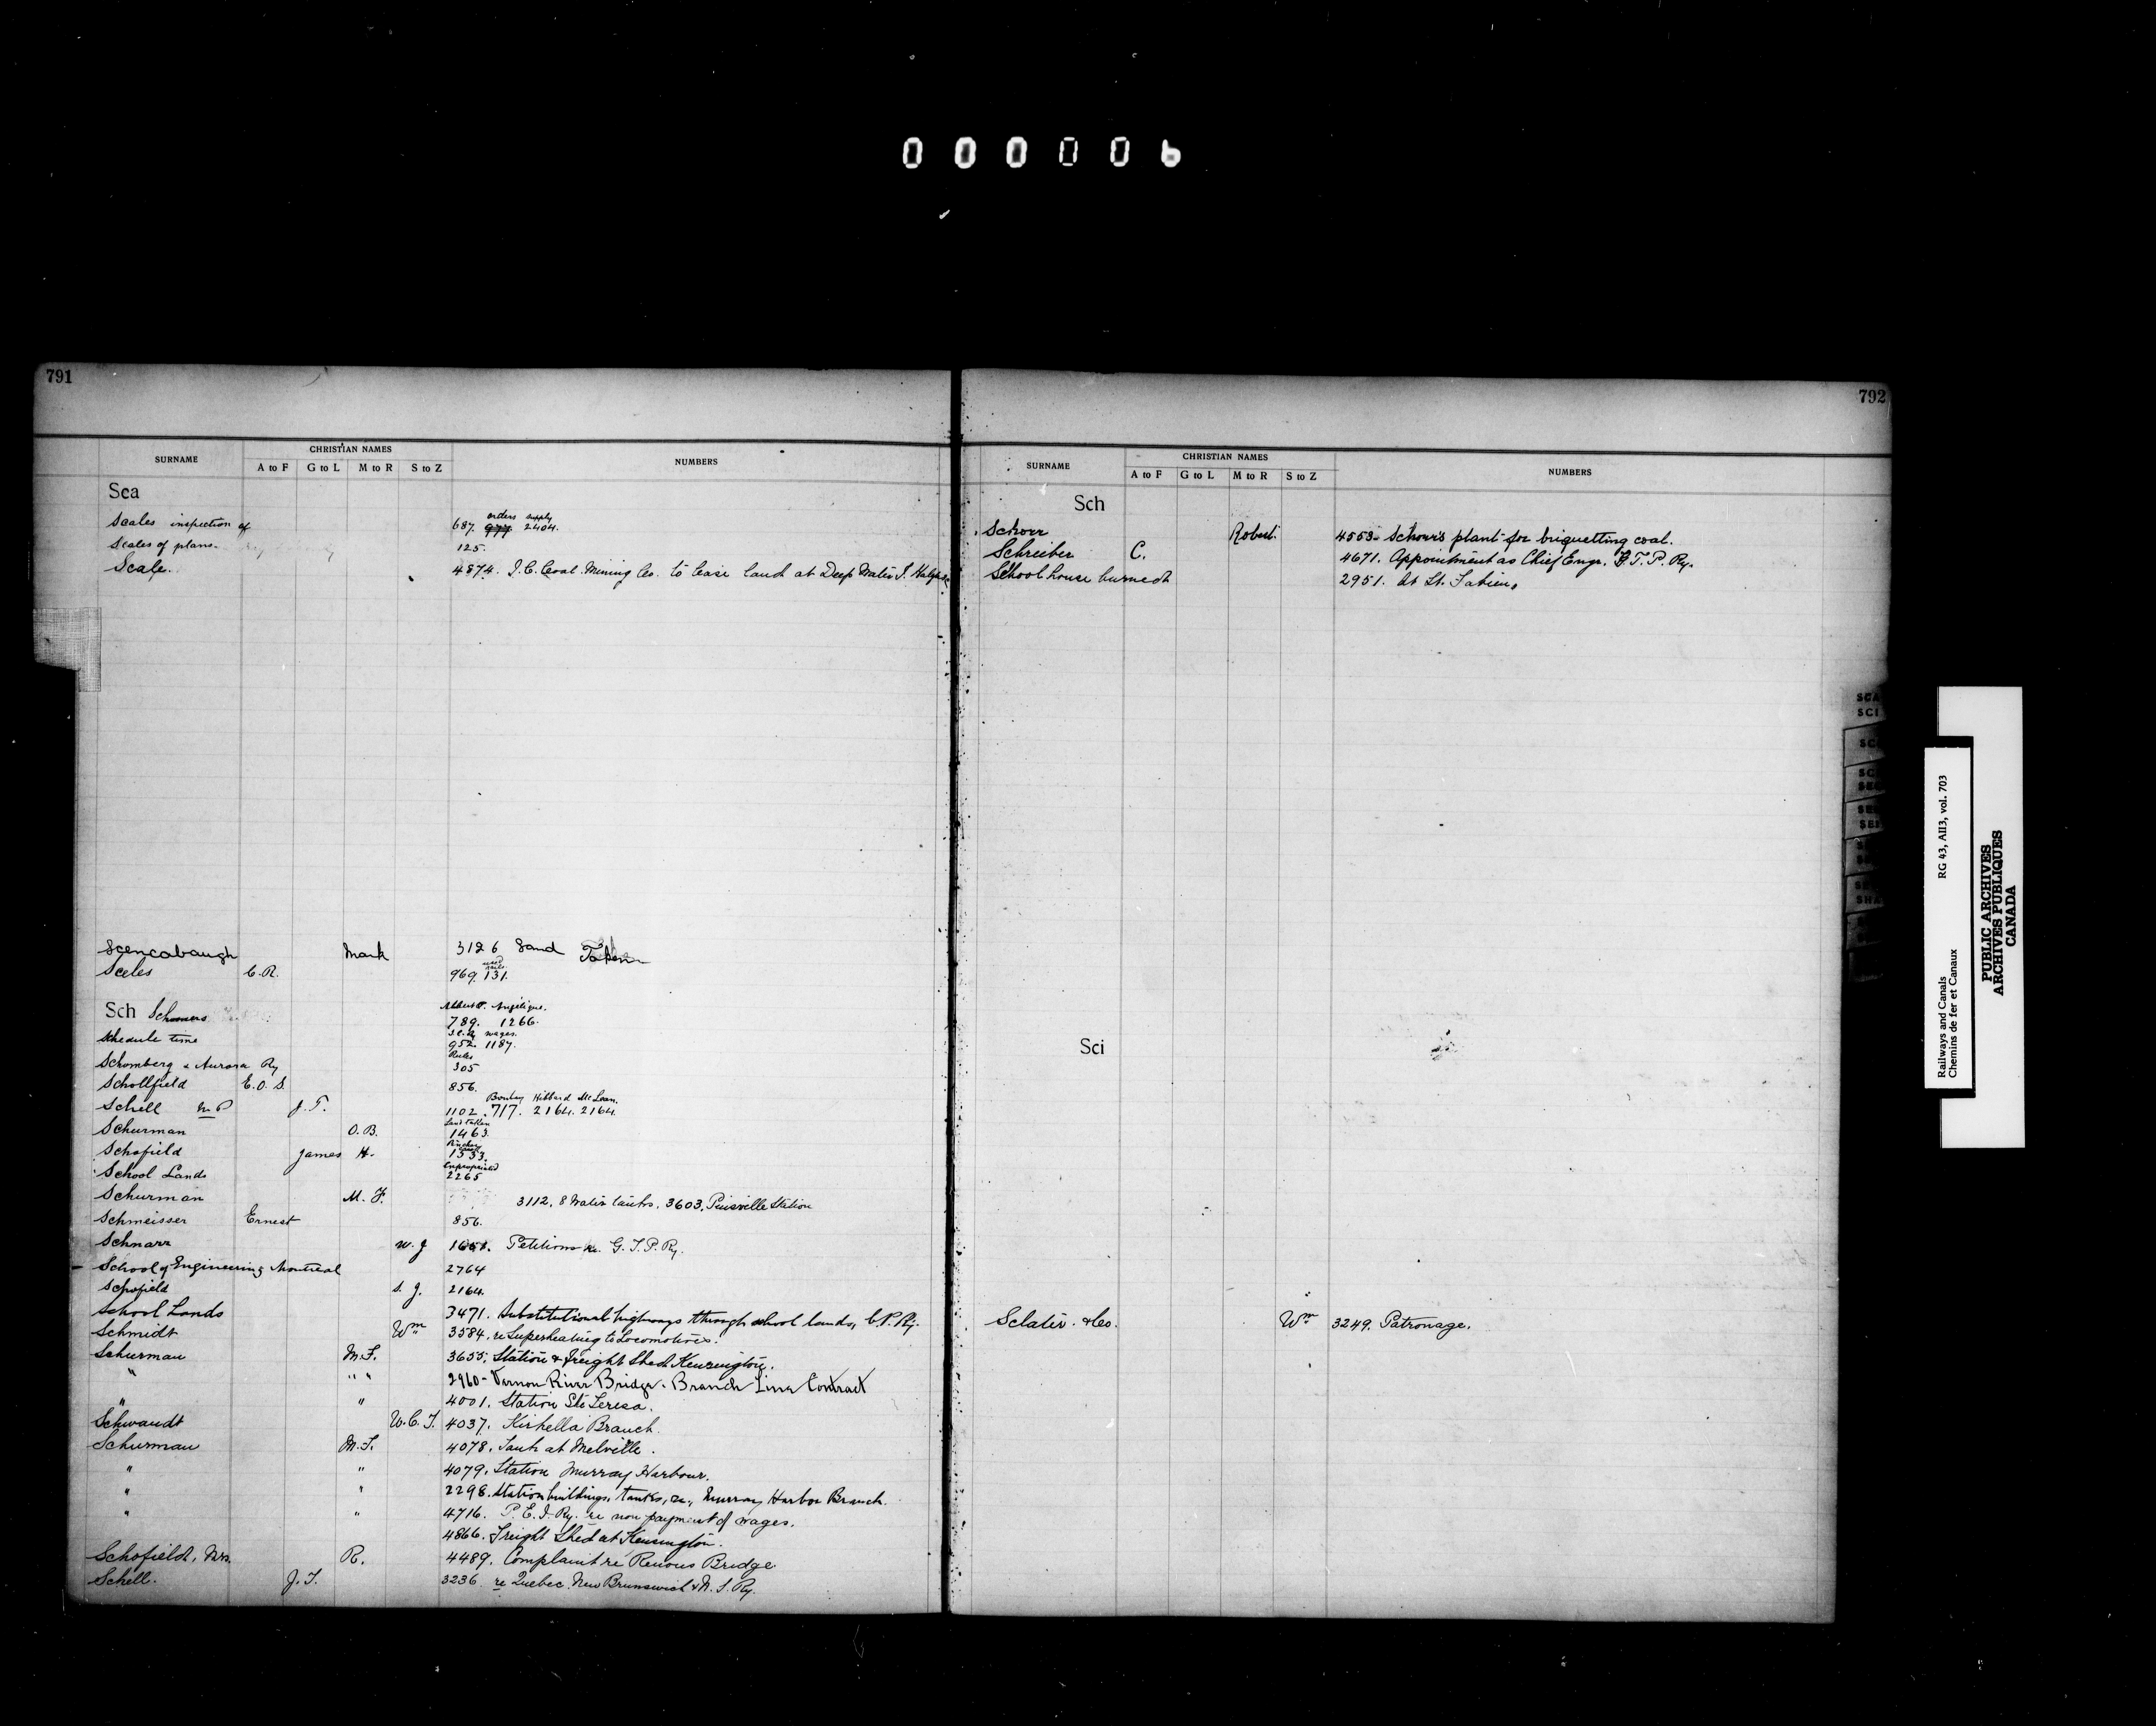 000006
791
SURNAME CHRISTIAN NAMES NUMBERS
A to F G to L M to R S to Z
Sca
orders supply
Scales inspection of 687. 977 2404.
Scales of plans. 125.
Scale. 4874. I.C. Coal Mining Co. to lease land at Deep Water T. Halifax
Scencabaugh Mark 3126 Sand Taken
used
Sceles C.R. 969. 131.
Albert P. Angelique.
Sch Schooners 789. 1266.
I.C.Ry wages.
Schedule time 952. 1187.
Rules
Schomberg & Aurora Ry 305
Schollfield E.O.S. 856.
Hibbard McLean.
Schell M.P. J.T. 1102. 717. 2164. 2164
Land taken
Schurman O.B. 1463.
Schofield James H. 1553.
Expropriated
School Lands 2265
Schurman M.F. 3112, 8 Water tanks. 3603, Station
Schmeisser Ernest 856.
Schnarr W.J 1651. Petitions re. G.T.P.Ry.
School of Engineering Montreal 2764
Schofield S.J. 2164.
School Lands 3471. Substitutional highways through school lands, C.P.Ry.
Schmidt Wm 3584. re Superheating to Locomotives.
Schurman M.F. 3655. Station & Freight Shed Kensington.
" " " 2960- Vernon River Bridge. Branch Line Contract
" " 4001. Station Ste Teresa.
Schwandt W.C.T. 4037. Kirkella Branch.
Schurman M.F. 4078. Tank at Melville.
" " 4079. Station Murray Harbour.
" " 2298. Station buildings, tanks, &c., Murray Harbor Branch.
" " 4716. P.E.I.Ry. re non payment of wages.
4866. Freight Shed at Kensington.
Schofield, Mrs. R. 4489. Complaint re Renous Bridge
Schell. J.T. 3236 re Quebec New Brunswick & N.S. Ry.
792
SURNAME CHRISTIAN NAMES NUMBERS
A to F G to L M to R S to Z
Sch
Schorr Robert. 4553- Schorr's plant for briquetting coal.
Schreiber C. 4671. Appointment as Chief Engr. G.T.P. Ry.
School house burned 2951. At St. Fabien.
Sci
Sclater & Co. Wm 3249. Patronage.
SCA
SCI
Railways and Canals RG 43, AII3, vol. 703
Chemins de fer et Canaux
PUBLIC ARCHIVES
ARCHIVES PUBLIQUES
CANADA